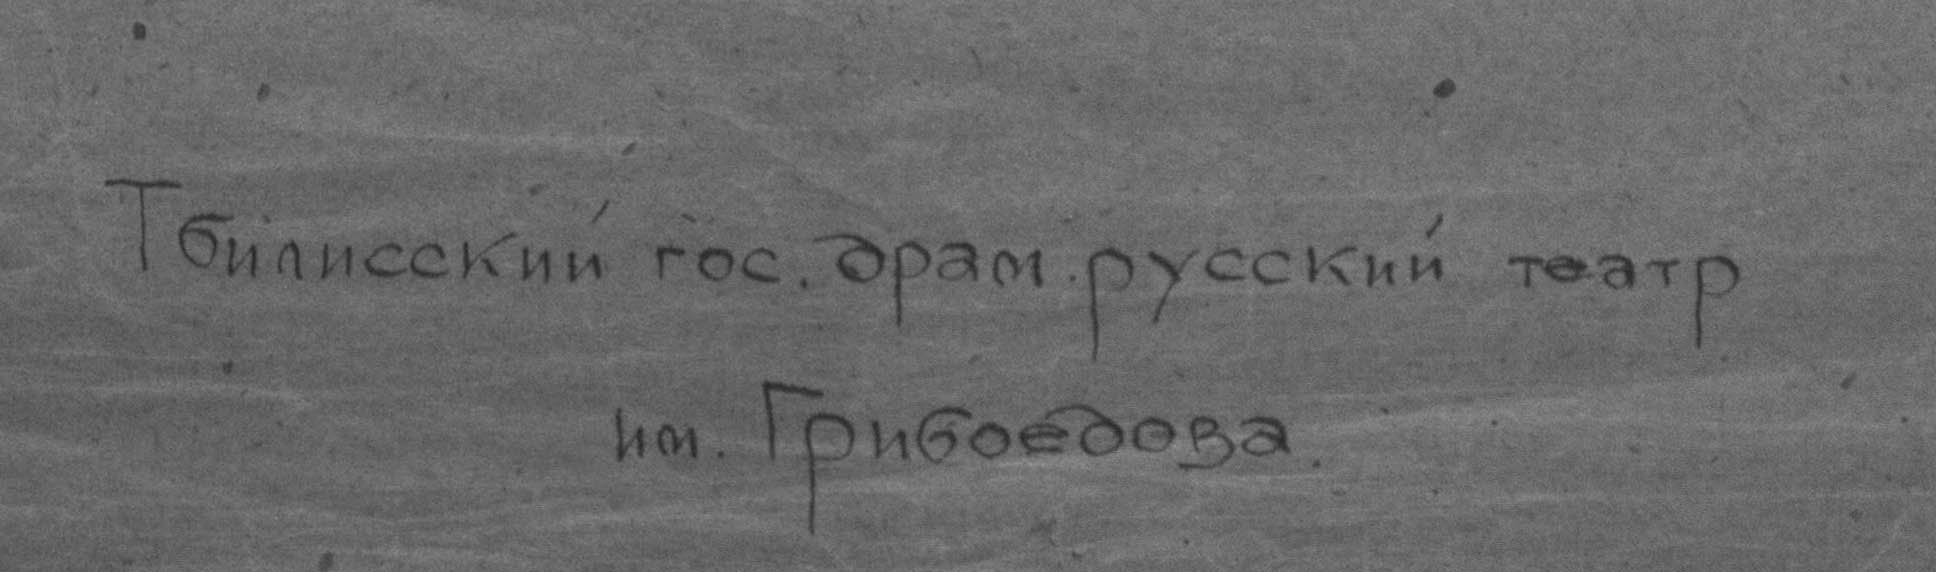 Тбилисский гос. драм. русский театр
им. Грибоедова.